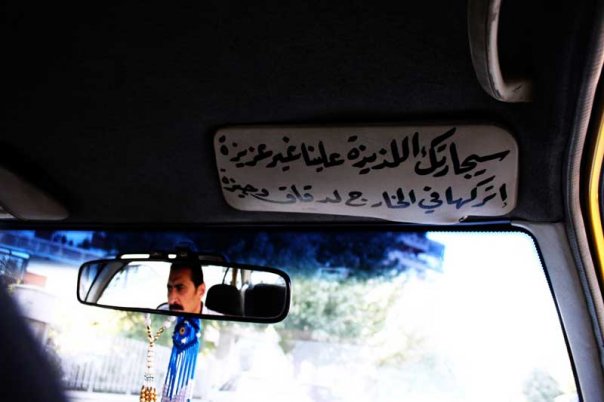 سيجارتك اللذيذة علينا غير عزيزة
اتركها في الخارج لدقائق وجيزة